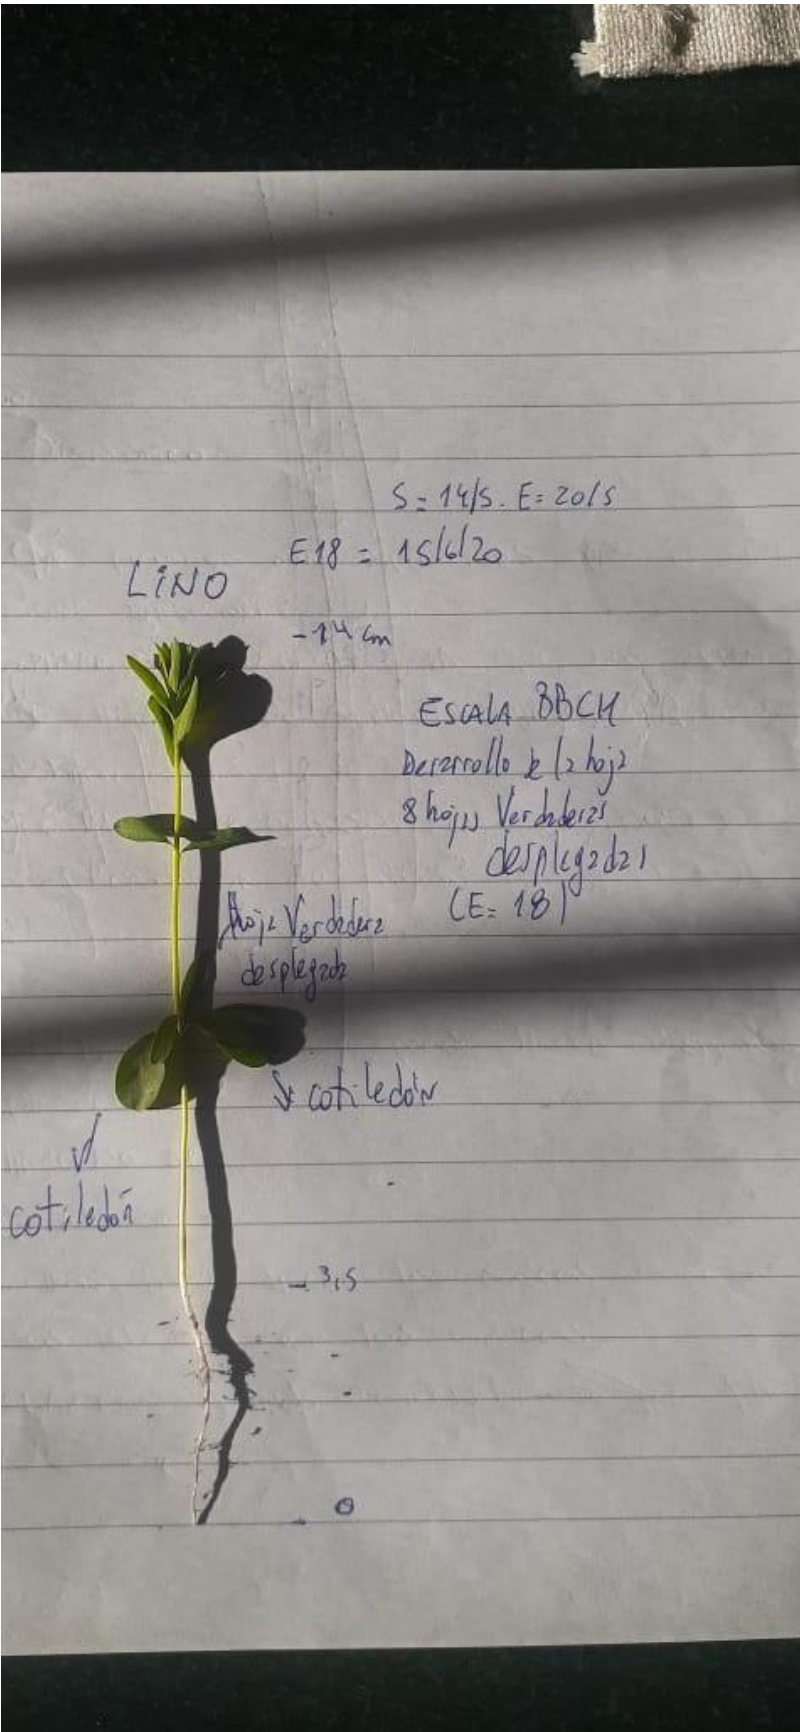 S = 14/5. E = 20/5
E18 = 15/6/20
LINO
- 14 cm
ESCALA BBCH
Desarrollo de la hoja
8 hojas Verdaderas
desplegadas
(E= 18)
hoja Verdadera
desplegada
cotiledón
cotiledón
- 3,5
- 0